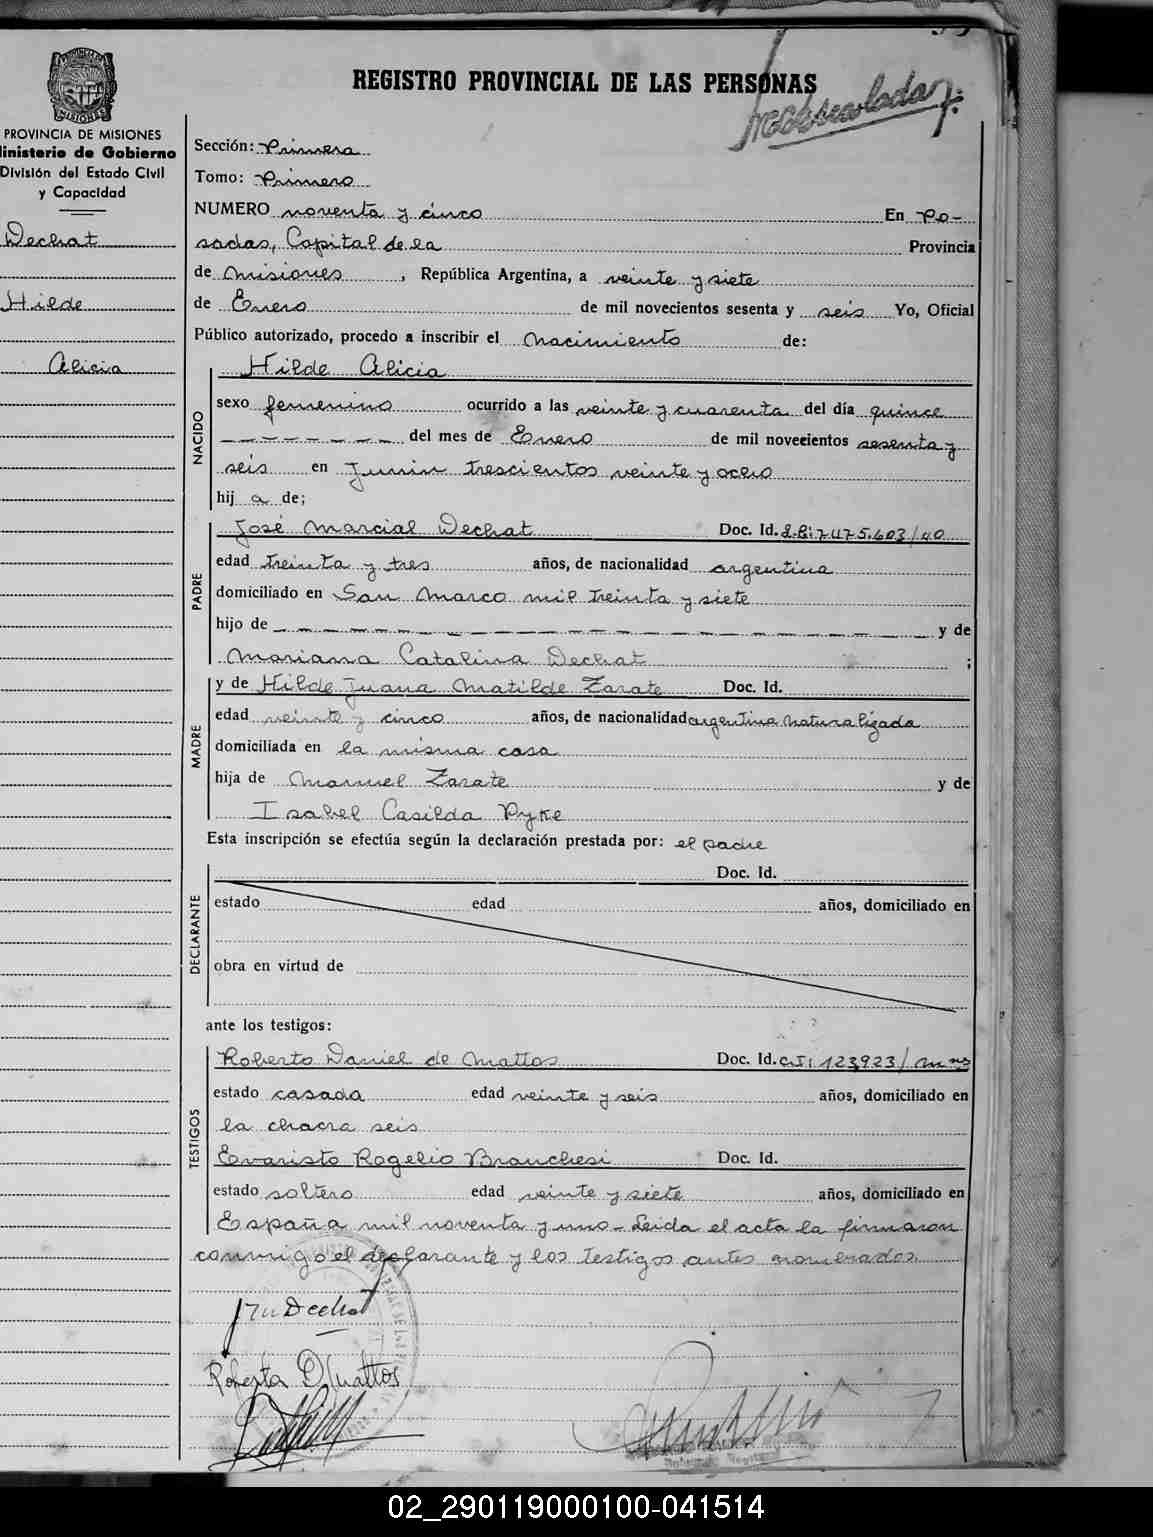 REGISTRO PROVINCIAL DE LAS PERSONAS
PROVINCIA DE MISIONES
Ministerio de Gobierno
División del Estado Civil
y Capacidad
Dechat
Hilde
Alicia
Sección: Primera
Tomo: Primero
NUMERO noventa y cinco En Po-
sadas, Capital de la Provincia
de Misiones, República Argentina, a veinte y siete
de Enero de mil novecientos sesenta y seis Yo, Oficial
Público autorizado, procedo a inscribir el nacimiento de:
Hilde Alicia
NACIDO
sexo femenino ocurrido a las veinte y cuarenta del día quince
del mes de Enero de mil novecientos sesenta y
seis en Junin trescientos veinte y ocho
hij a de;
PADRE
José Marcial Dechat Doc. Id. L.E: 7.475.603/40
edad treinta y tres años, de nacionalidad argentina
domiciliado en San Marco mil treinta y siete
hijo de y de
Mariana Catalina Dechat ;
MADRE
y de Hilde Juana Matilde Zarate Doc. Id.
edad veinte y cinco años, de nacionalidad argentina naturalizada
domiciliada en la misma casa
hija de Manuel Zarate y de
Isabel Casilda Pyke
Esta inscripción se efectúa según la declaración prestada por: el padre
DECLARANTE
Doc. Id.
estado edad años, domiciliado en
obra en virtud de
ante los testigos:
TESTIGOS
Roberto Daniel de Mattos Doc. Id. C.I: 123,923/ Mnes
estado casada edad veinte y seis años, domiciliado en
la chacra seis
Evaristo Rogelio Branchesi Doc. Id.
estado soltero edad veinte y siete años, domiciliado en
España mil noventa y uno - Leida el acta la firmaron
conmigo el declarante y los testigos antes nombrados.
Dechat
Roberto D. Mattos
02_290119000100-041514